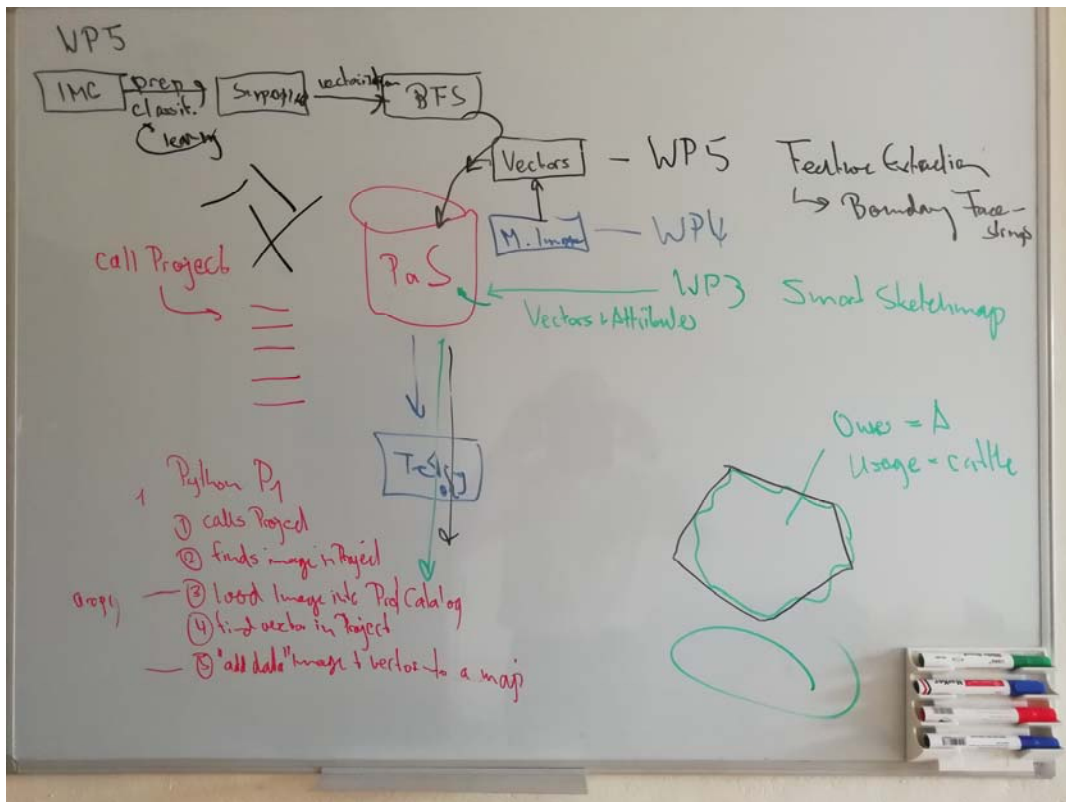 WP5
IMC
prep
classif.
learning
vectorization
BFS
Vectors – WP5 Feature Extraction
↳ Boundary Face-
strings
M. Image – WP4
PaS
call Project
WP3 Smart Sketchmap
Vectors + Attributes
Owner = A
Usage = cattle
Python P1
① calls Project
② finds image in Project
③ load Image into Prof Catalog
④ find vector in Project
⑤ "add data" image + vector to a map